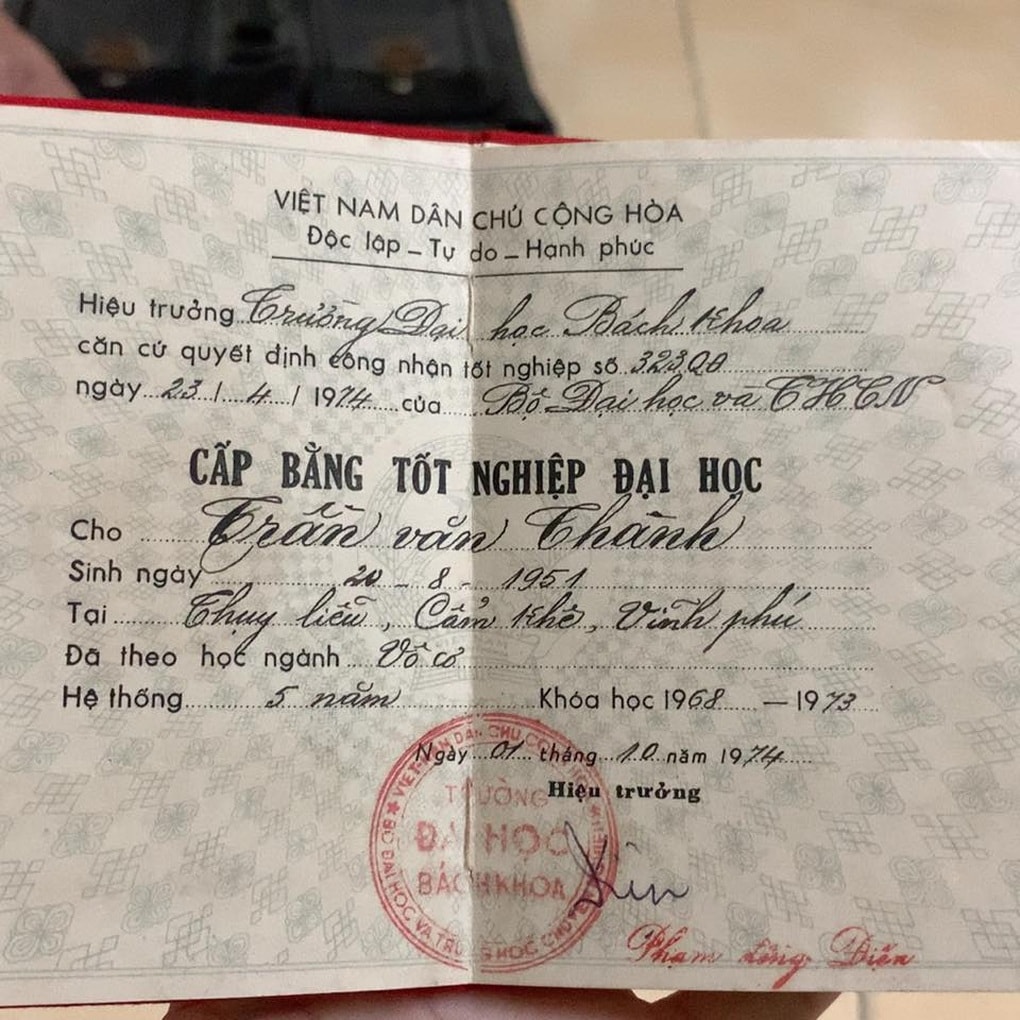 VIỆT NAM DÂN CHỦ CỘNG HÒA
Độc lập – Tự do – Hạnh phúc
Hiệu trưởng Trường Đại học Bách Khoa
căn cứ quyết định công nhận tốt nghiệp số 323QĐ
ngày 23 / 4 / 1974 của Bộ Đại học và THCN
CẤP BẰNG TỐT NGHIỆP ĐẠI HỌC
Cho Trần văn Thành
Sinh ngày 20 - 8 - 1951
Tại Thụy liễu, Cẩm Khê, Vĩnh phú
Đã theo học ngành Vô cơ
Hệ thống 5 năm Khóa học 1968 — 1973
Ngày 01 tháng 10 năm 1974
Hiệu trưởng
TRƯỜNG
ĐẠI HỌC
BÁCH KHOA
BỘ ĐẠI HỌC VÀ TRUNG HỌC CHUYÊN
VIỆT NAM DÂN CHỦ
Phạm Diễn